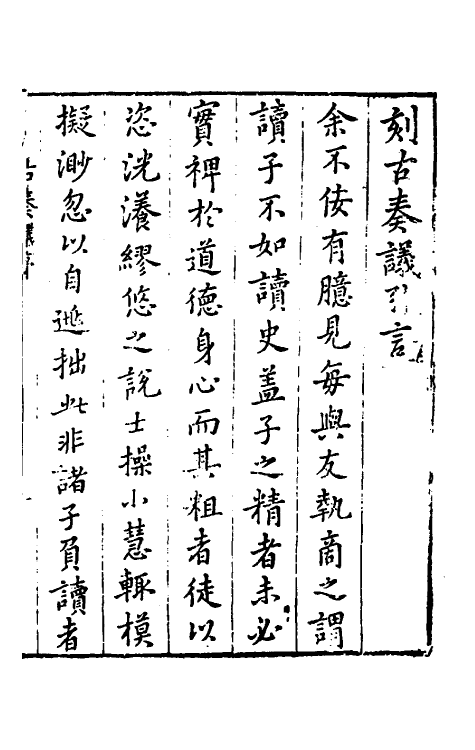 刻古奏議引言
余不佞有臆見每與友執商之謂
讀子不如讀史盖子之精者未必
實裨於道德身心而其粗者徒以
恣洸瀁繆悠之說士操小慧輒模
擬渺忽以自遁拙此非諸子負讀者
古奏議序